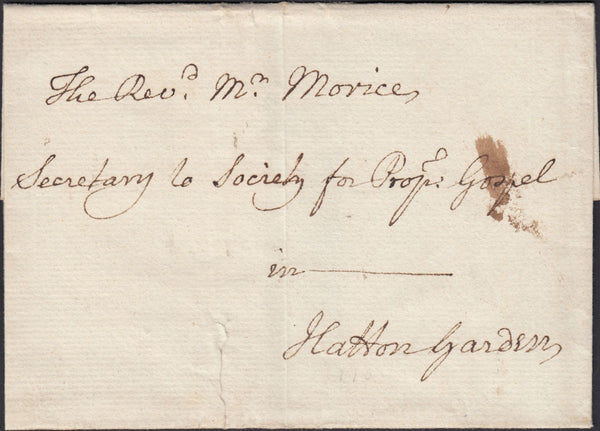 The Rev.d Mr. Morice
Secretary to Society for Prop.g Gospel
in
Hatton Garden